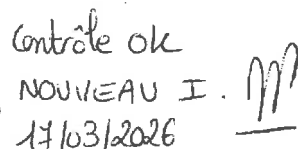 Contrôle ok
NOUVEAU I.
17/03/2026